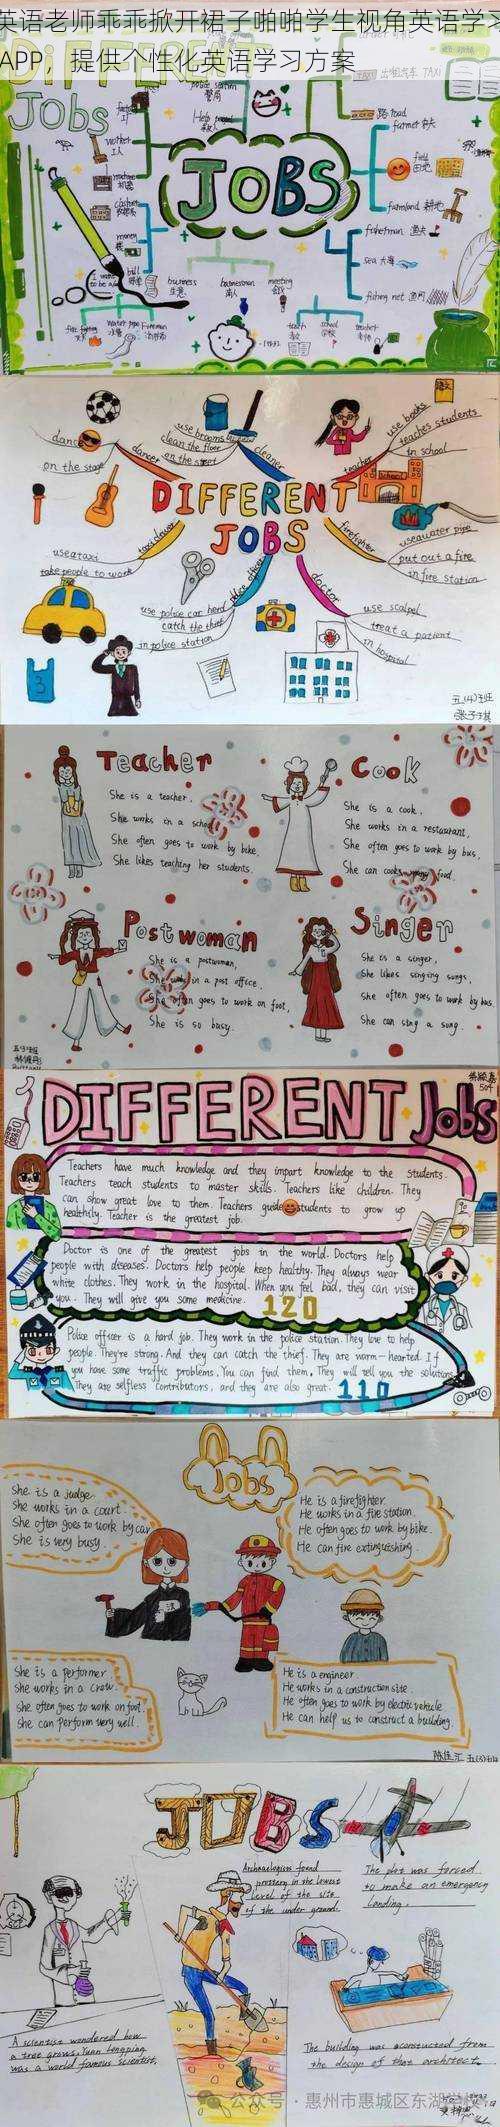 英语老师乖乖掀开裙子啪啪学生视角英语学习
APP，提供个性化英语学习方案
DIFFERENT
Jobs
TAXI 出租汽车
police station
警局
factory
工厂
worker
工人
machine
机器
road
farmer 农夫
field
田地
farmland 耕地
fisherman 渔夫
sea 大海
fishing net 渔网
JOBS
money
钱
bill
business
生意
businessman
商人
meeting
会议
fire fighting
water pipe
水管
fireman
消防员
teach
教
school
学校
teacher
老师
dance
on the stage
dancer
use brooms
clean the floor
on the street
cleaner
use books
teaches students
in school
teacher
DIFFERENT
JOBS
School
taxi driver
use a taxi
take people to work
firefighter
use water pipe
put out a fire
in fire station
police officer
use police car
catch the thief
in police station
doctor
use scalpel
treat a patient
in hospital
3
五(4)班
张子琪
Teacher
She is a teacher.
She works in a school.
She often goes to work by bike.
She likes teaching her students.
Cook
She is a cook,
She works in a restaurant,
She often goes to work by bus,
She can cooks many food.
Postwoman
She is a postwoman,
She works in a post office,
She often goes to work on foot,
She is so busy.
Singer
She is a singer,
She likes singing songs,
She often goes to work by bus,
She can sing a song.
504
DIFFERENT Jobs
Teachers have much knowledge and they impart knowledge to the students.
Teachers teach students to master skills. Teachers like children. They
can show great love to them. Teachers guide students to grow up
healthily. Teacher is the greatest job.
Doctor is one of the greatest jobs in the world. Doctors help
people with diseases. Doctors help people keep healthy. They always wear
white clothes. They work in the hospital. When you feel bad, they can visit
you. They will give you some medicine. 120
Police officer is a hard job. They work in the police station. They love to help
people. They're strong. And they can catch the thief. They are warm-hearted. If
you have some traffic problems, You can find them, They will tell you the solution.
They are selfless contributors, and they are also great. 110
Jobs
She is a judge.
She works in a court.
She often goes to work by car
She is very busy.
He is a firefighter.
He works in a fire station.
He often goes to work by bike.
He can fire extinguishing.
She is a performer
She works in a crow.
She often goes to work on foot.
She can perform very well.
He is a engineer.
He works in a construction site.
He often goes to work by electric vehicle
He can help us to construct a building.
JOBS
Archaeologists found
pottery in the lowest
level of the site
of the under ground.
The plot was forced
to make an emergency
landing.
A scientist wondered how
a tree grows, Yuan Longping
was a world famous scientist.
The building was constructed from
the design of that architect.
公众号 · 惠州市惠城区东湖学校